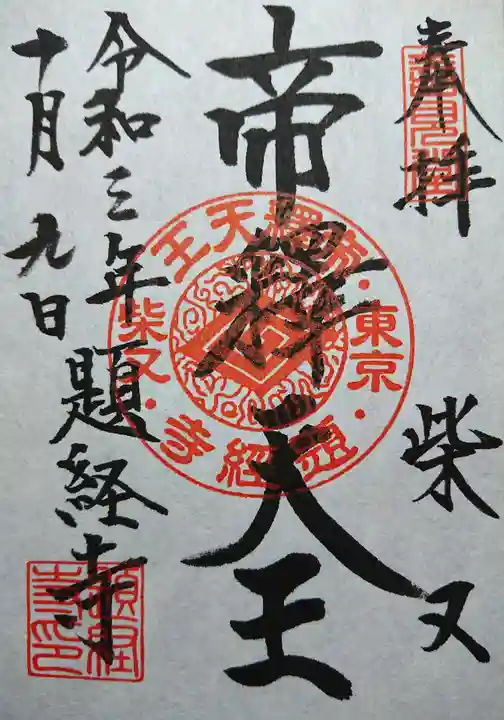 奉拝
柴又
帝釋天王
令和三年 題経寺
十月九日
帝釋天王
・東京・
柴又・
題經寺
題経
寺印